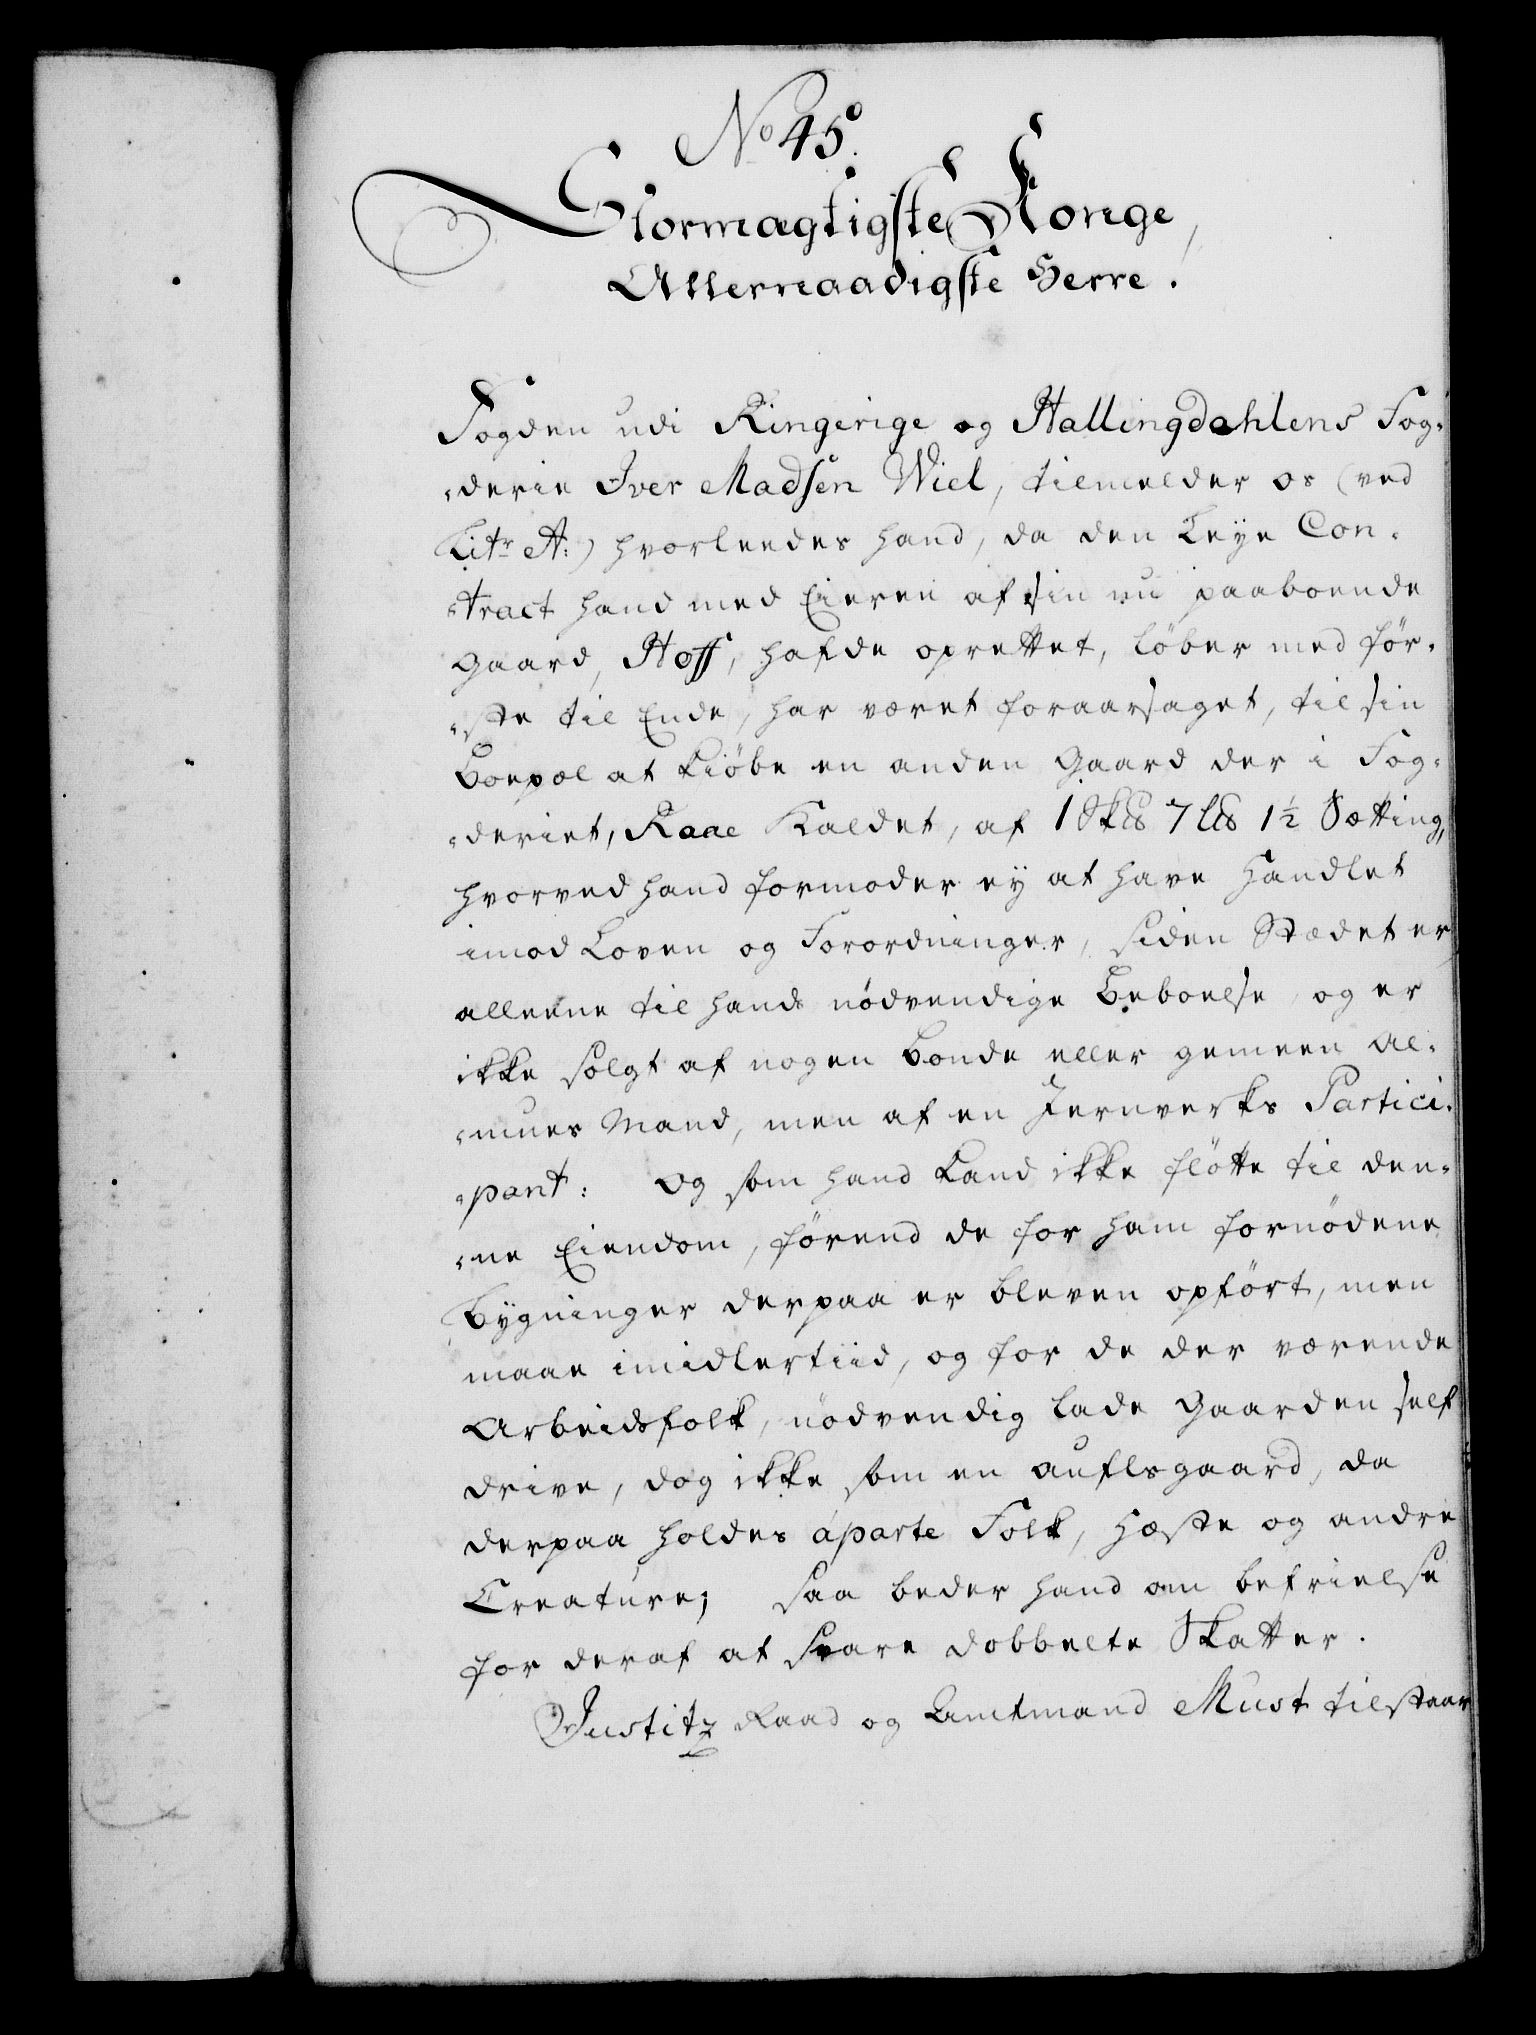 No 45.
Stormægtigste Konge,
Allernaadigste Herre.
Fogden udi Ringerige og Hallingdahlens Fog-
-derie Iver Madsen Wiel, tilmelder os (ved
Litr A:) hvorleedes hand, da den Leye Con-
-tract hand med Eieren af sin nu paaboende
Gaard, Hoff, hafde oprettet, løber med før-
-ste til Ende, har været foraarsaget, til sin
Boepæl at kiøbe en anden Gaard der i Fog-
-deriet, Raae kaldet, af 1 Sk℔ 7 L℔ 1½ Sætting,
hvorved hand formoder ey at have handlet
imod Loven og Forordninger, siden Stædet er
alleene til hands nødvendige Beboelse, og er
ikke solgt af nogen Bonde eller gemeen Al-
-mues Mand, men af en Jernverks Partici-
-pant: Og som hand kand ikke flötte til den-
-ne Eiendom, førend de for ham fornødene
Bygninger derpaa er bleven opført, men
maae imidlertiid, og for de der værende
Arbeidsfolk, nødvendig lade Gaarden self
drive, dog ikke som en auflsgaard, da
derpaa holdes áparte Folk, Hæste og andre
Creature; saa beder hand om befrielse
for deraf at svare dobbelte Skatter.
Justitz Raad og Amtmand Must tilstaar